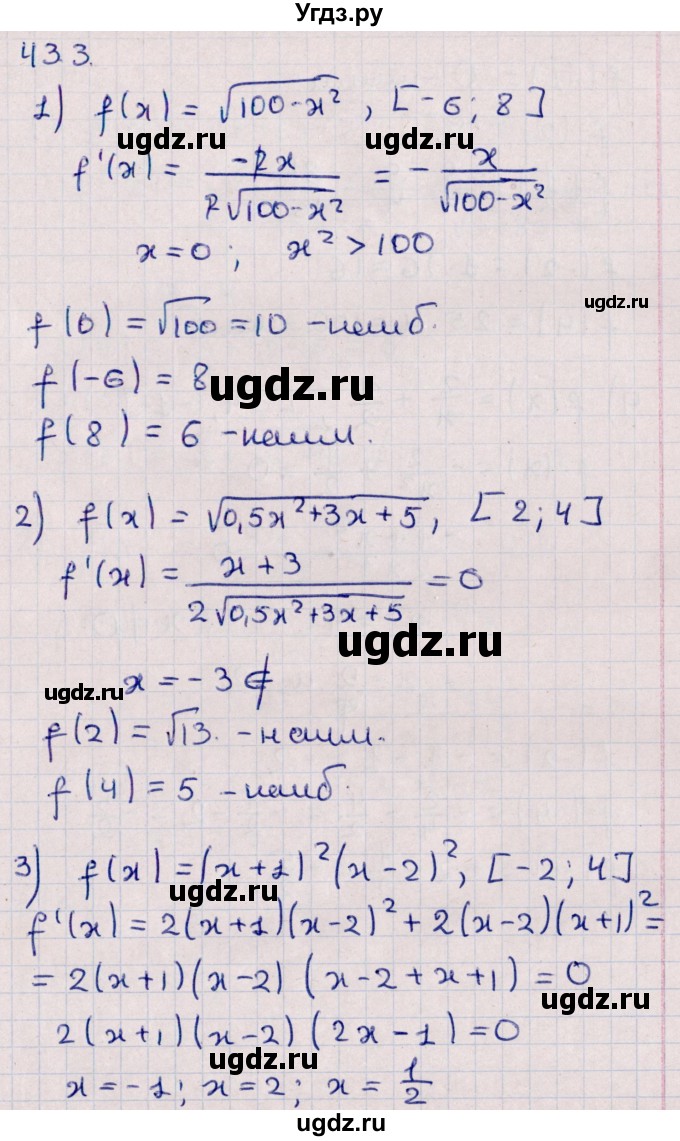 Угдз.ру
43.3.
1) f(x) = √(100-x²), [-6; 8]
ugdz.ru ugdz.ru
f'(x) = -2x / 2√(100-x²) = - x / √(100-x²)
x=0; x² > 100
ugdz.ru
f(0) = √100 = 10 - наиб.
f(-6) = 8
ugdz.ru
f(8) = 6 - наим.
2) f(x) = √(0,5x²+3x+5), [2; 4]
f'(x) = x+3 / 2√(0,5x²+3x+5) = 0
ugdz.ru
x = -3 ∉
ugdz.ru
f(2) = √13. - наим.
f(4) = 5 - наиб.
3) f(x) = (x+1)²(x-2)², [-2; 4]
ugdz.ru
f'(x) = 2(x+1)(x-2)² + 2(x-2)(x+1)² =
= 2(x+1)(x-2) (x-2+x+1) = 0
ugdz.ru
2(x+1)(x-2)(2x-1) = 0
ugdz.ru
x = -1; x = 2; x = 1/2
ugdz.ru